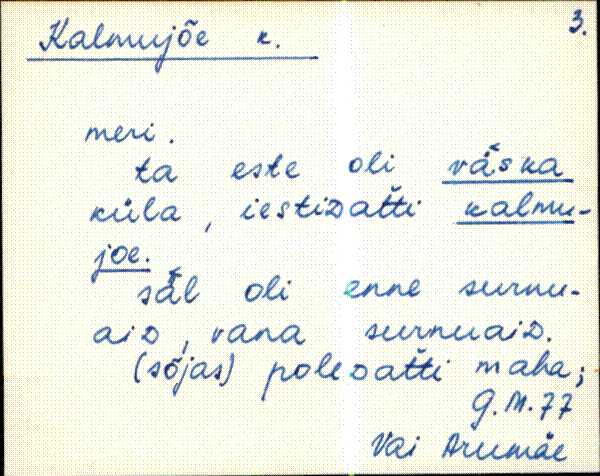 Kalmujõe k. 3.
meri.
ta este oli väska
küla, iestizatti kalmu-
joe.
säl oli enne surnu-
aiz, vana surnuaiz.
(sõjas) polezatti maha;
G.M.77
Vai Arumäe